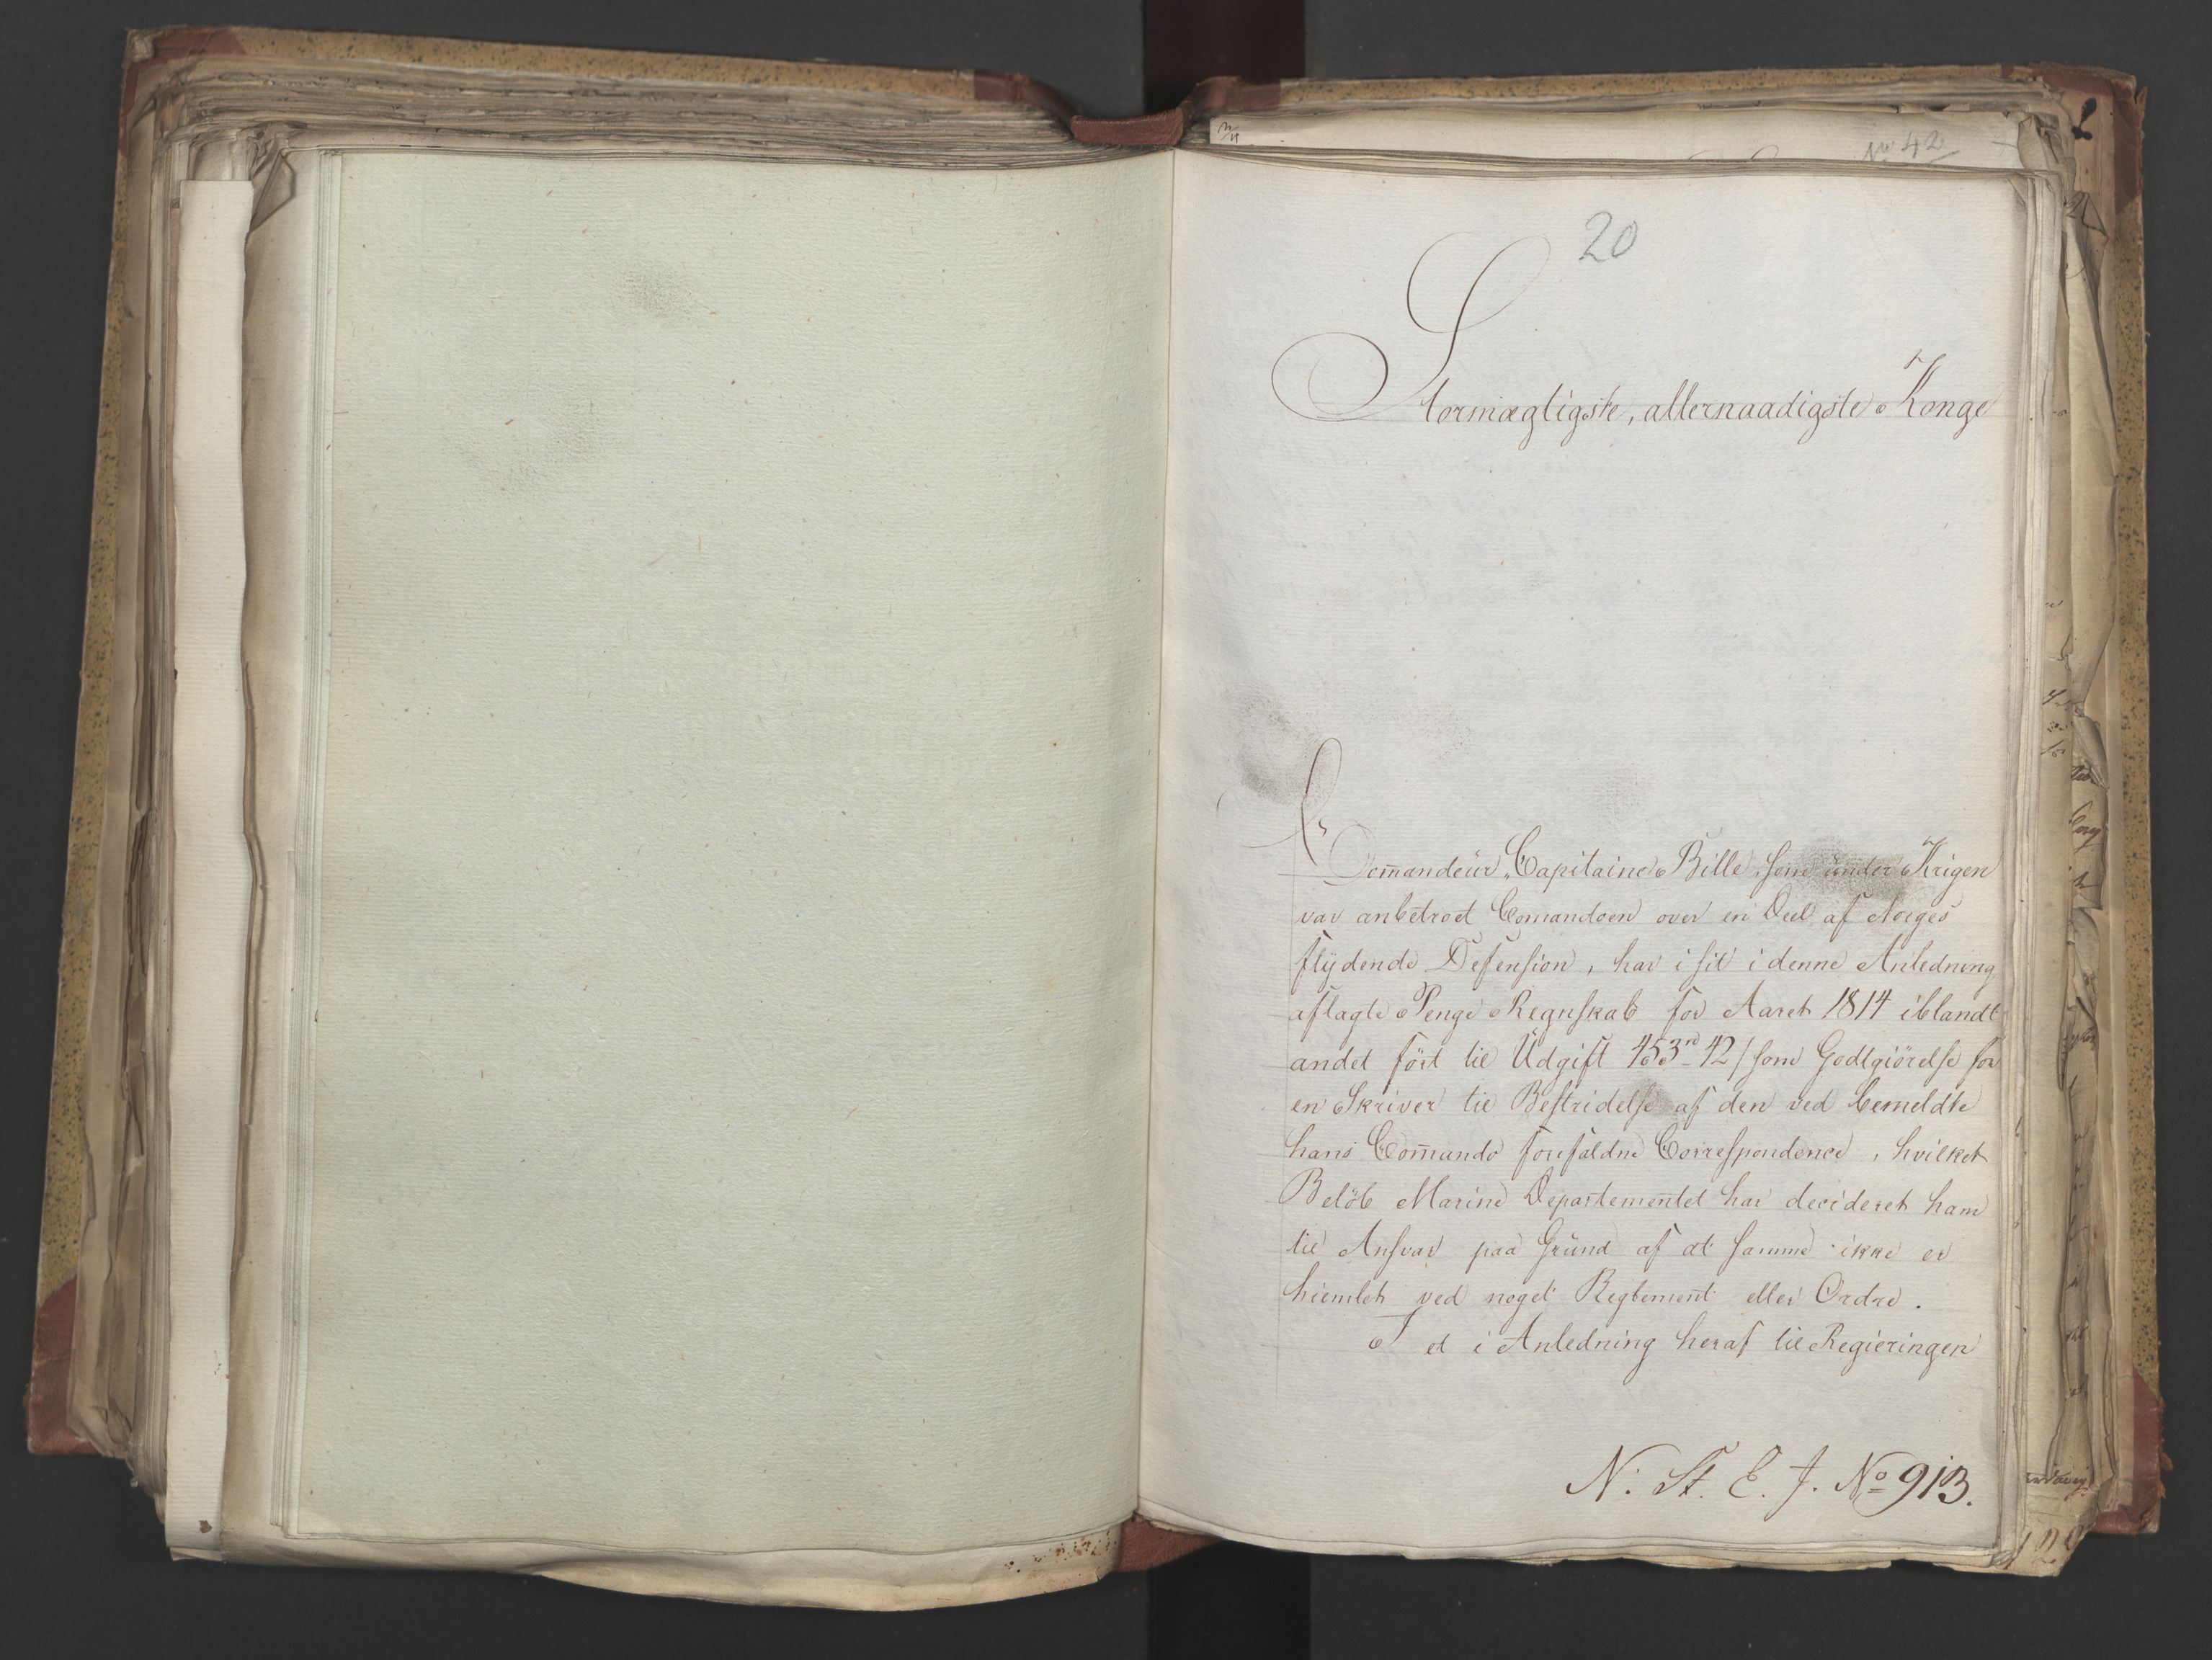 No 42
20
Stormægtigste, allernaadigste Konge
Com̄andeür Capitaine Bille, som ünder Krigen
var anbetroet Com̄andoen over en Deel af Norges
flÿdende Defension, har i sit i denne Anledning
aflagte Penge Regnskab for Aaret 1814 iblandt
andet fört til Udgift 453 rd 42 s som Godtgiörelse for
en Skriver til Bestridelse af den ved bemeldte
hans Com̄ando forefaldne Correspondence, hvilket
Belöb Marine Departementet har decideret ham
til Ansvar paa Gründ af at samme ikke er
hiemlet ved noget Reglement eller Ordre.
I et i Anledning heraf til Regieringen
N. St. E. J. No 913.